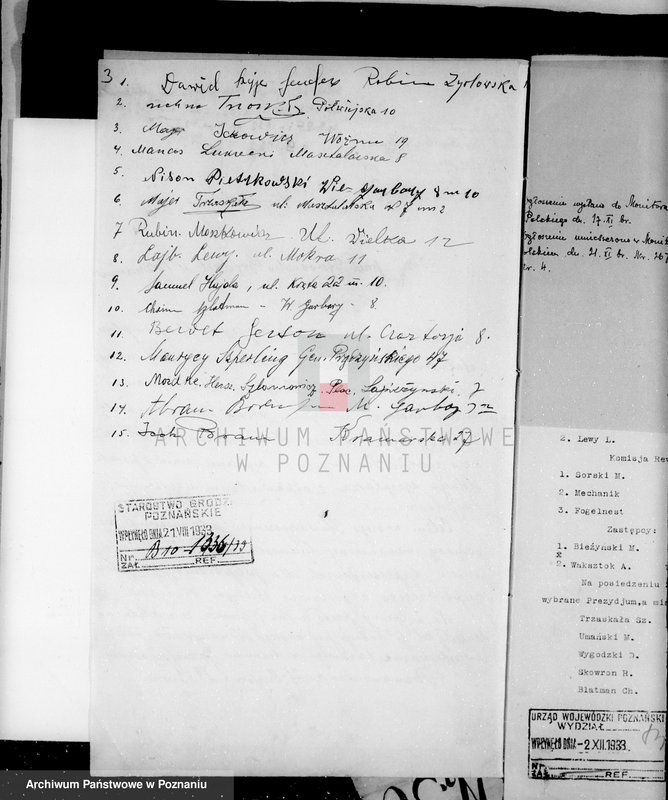 3
1. Dawid Rubin Żydowska 1
2. Półwiejska 10
3. Ickowicz Woźna 19
4. Mancas Masztalarska 8
5. Nison Pietrkowski Wie. Garbary 8 m 10
6. Majer ul. Masztalarska 7 m 2
7 Rubin. Moszkowicz Ul. Wielka 12
8. Lajb. Lewy. ul. Mokra 11
9. Samuel Hajda, ul. Kręta 22 m. 10.
10. Chaim Szlatman - W Garbary - 8.
11. Berset Gerson ul. Czartorja 8.
12. Maurycy Szperling Gen. Prądzyńskiego 47
13. Mordke. Hersz. Szlamowicz Plac. Sapieżyński. 7
14. Abram W. Garbary
15. Icek Baum Kramarska 27
ARCHIWUM PAŃSTWOWE
W POZNANIU
STAROSTWO GRODZ.
POZNAŃSKIE
WPŁYNĘŁO DNIA 21 VIII 1933
Nr. B 10 - 1336/33
ZAŁ. REF.
ogłoszenie wysłano do Monitora
Polskiego dn. 17. XI br.
ogłoszenie umieszczono w Monit.
Polskim dn. 21. XI br. Nr. 267
Nr. 4.
2. Lewy L.
Komisja Rew
1. Sorski M.
2. Mechanik
3. Fogelnest
Zastępcy:
1. Bieżyński M.
2. Waksztok A.
Na posiedzeniu
wybrane Prezydjum, a mia
Trzaskała Sz.
Umański M.
Wygodzki D.
Skowron R.
Blatman Ch.
URZĄD WOJEWÓDZKI POZNAŃSKI
WYDZIAŁ
WPŁYNĘŁO DNIA -2 XII. 1933
Nr.
ZAŁ. REF.
Archiwum Państwowe w Poznaniu